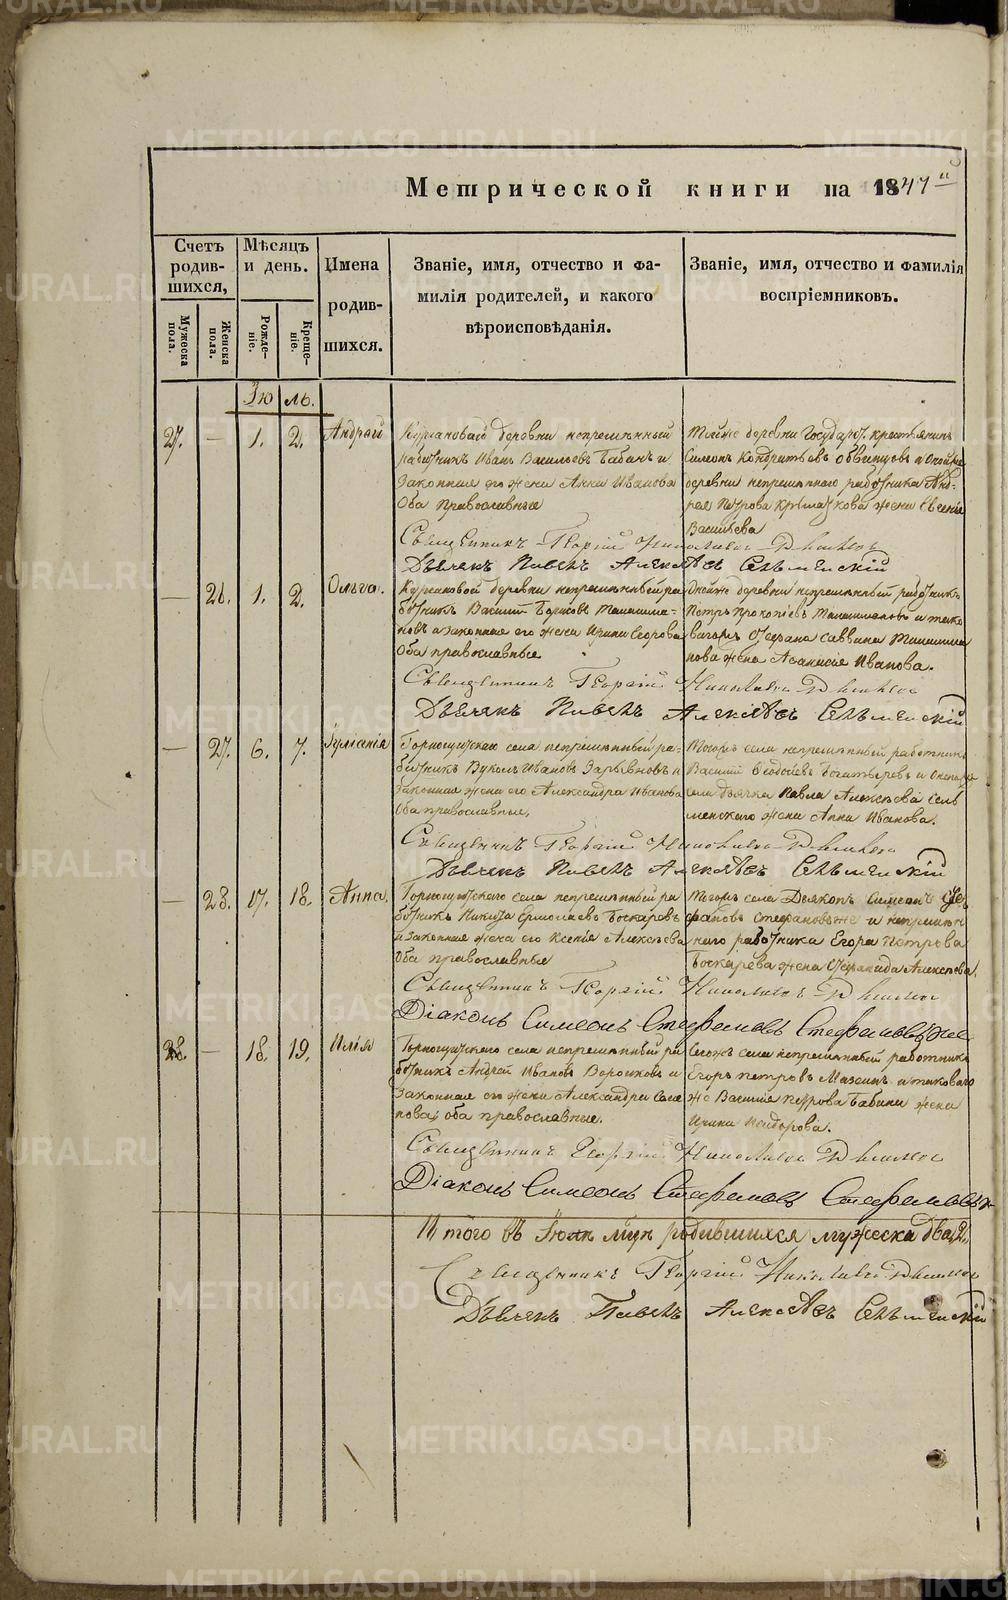 Метрической книги на 1847й
Счетъ родившихся,
Мѣсяцъ и день.
Имена родившихся.
Званіе, имя, отчество и фамилія родителей, и какого вѣроисповѣданія.
Званіе, имя, отчество и фамилія воспріемниковъ.
Мужеска пола.
Женска пола.
Рожденіе.
Крещеніе.
Іюль.
27. — 1. 2. Андрей
Кургановой деревни непремѣнный
работникъ Иванъ Васильевъ Бабинъ и
законная его жена Анна Иванова
Оба православные
тойже деревни Государ. крестьянинъ
Симеонъ Кондратьевъ Обвинцовъ и Онойже
деревни непремѣннаго работника Анд-
рея Петрова жена Евгенія
Васильева
Священникъ Георгій Николаевъ
Дьячекъ Павелъ Алексѣевъ Сельменскій
— 26. 1. 2. Ольга.
Кургановой деревни непремѣнный ра
ботникъ Василій Борисовъ
новъ а законная его жена Ирина Егорова
Оба православные
Онойже деревни непремѣнный работникъ
Петръ Прокопіевъ и тако
ваго Стефана Саввина
нова жена Афанасія Иванова.
Священникъ Георгій Николаевъ
Дьячекъ Павелъ Алексѣевъ Сельменскій
— 27. 6. 7. Іуліанія
Горнощитскаго села непремѣнный ра-
ботникъ Вуколъ Ивановъ и
законная жена его Александра Иванова
Оба православные,
Тогожъ села непремѣнный работникъ
Василій Феодоровъ Богатыревъ и Онагоже
села дьячка Павла Алексѣева Сель
менскаго жена Анна Иванова.
Священникъ Георгій Николаевъ
Дьячекъ Павелъ Алексѣевъ Сельменскій
— 28. 17. 18. Анна.
Горнощитскаго села непремѣнный ра
ботникъ Никита Ермолаевъ Боскаревъ
и законная жена его Ксенія Алексѣева
Оба православные
Тогожъ села Діаконъ Симеонъ Сте
фановъ и непремѣн
наго работника Егора Петрова
Боскарева жена Алексѣева.
Священникъ Георгій Николаевъ
Діаконъ Симеонъ Стефановъ
28. — 18. 19. Илія
Горнощитскаго села непремѣнный ра
ботникъ Андрей Ивановъ Воронковъ и
законная его жена Александра
нова, оба православные.
Тогожъ села непремѣнный работникъ
Егоръ Петровъ Мазеинъ и таковаго
же Василія Петрова Бабина жена
Ирина Исидорова.
Священникъ Георгій Николаевъ
Діаконъ Симеонъ Стефановъ
Итого въ Іюлѣ родившихся мужеска два, 2.
Священникъ Георгій Николаевъ
Дьячекъ Павелъ Алексѣевъ Сельменскій
METRIKI.GASO-URAL.RU